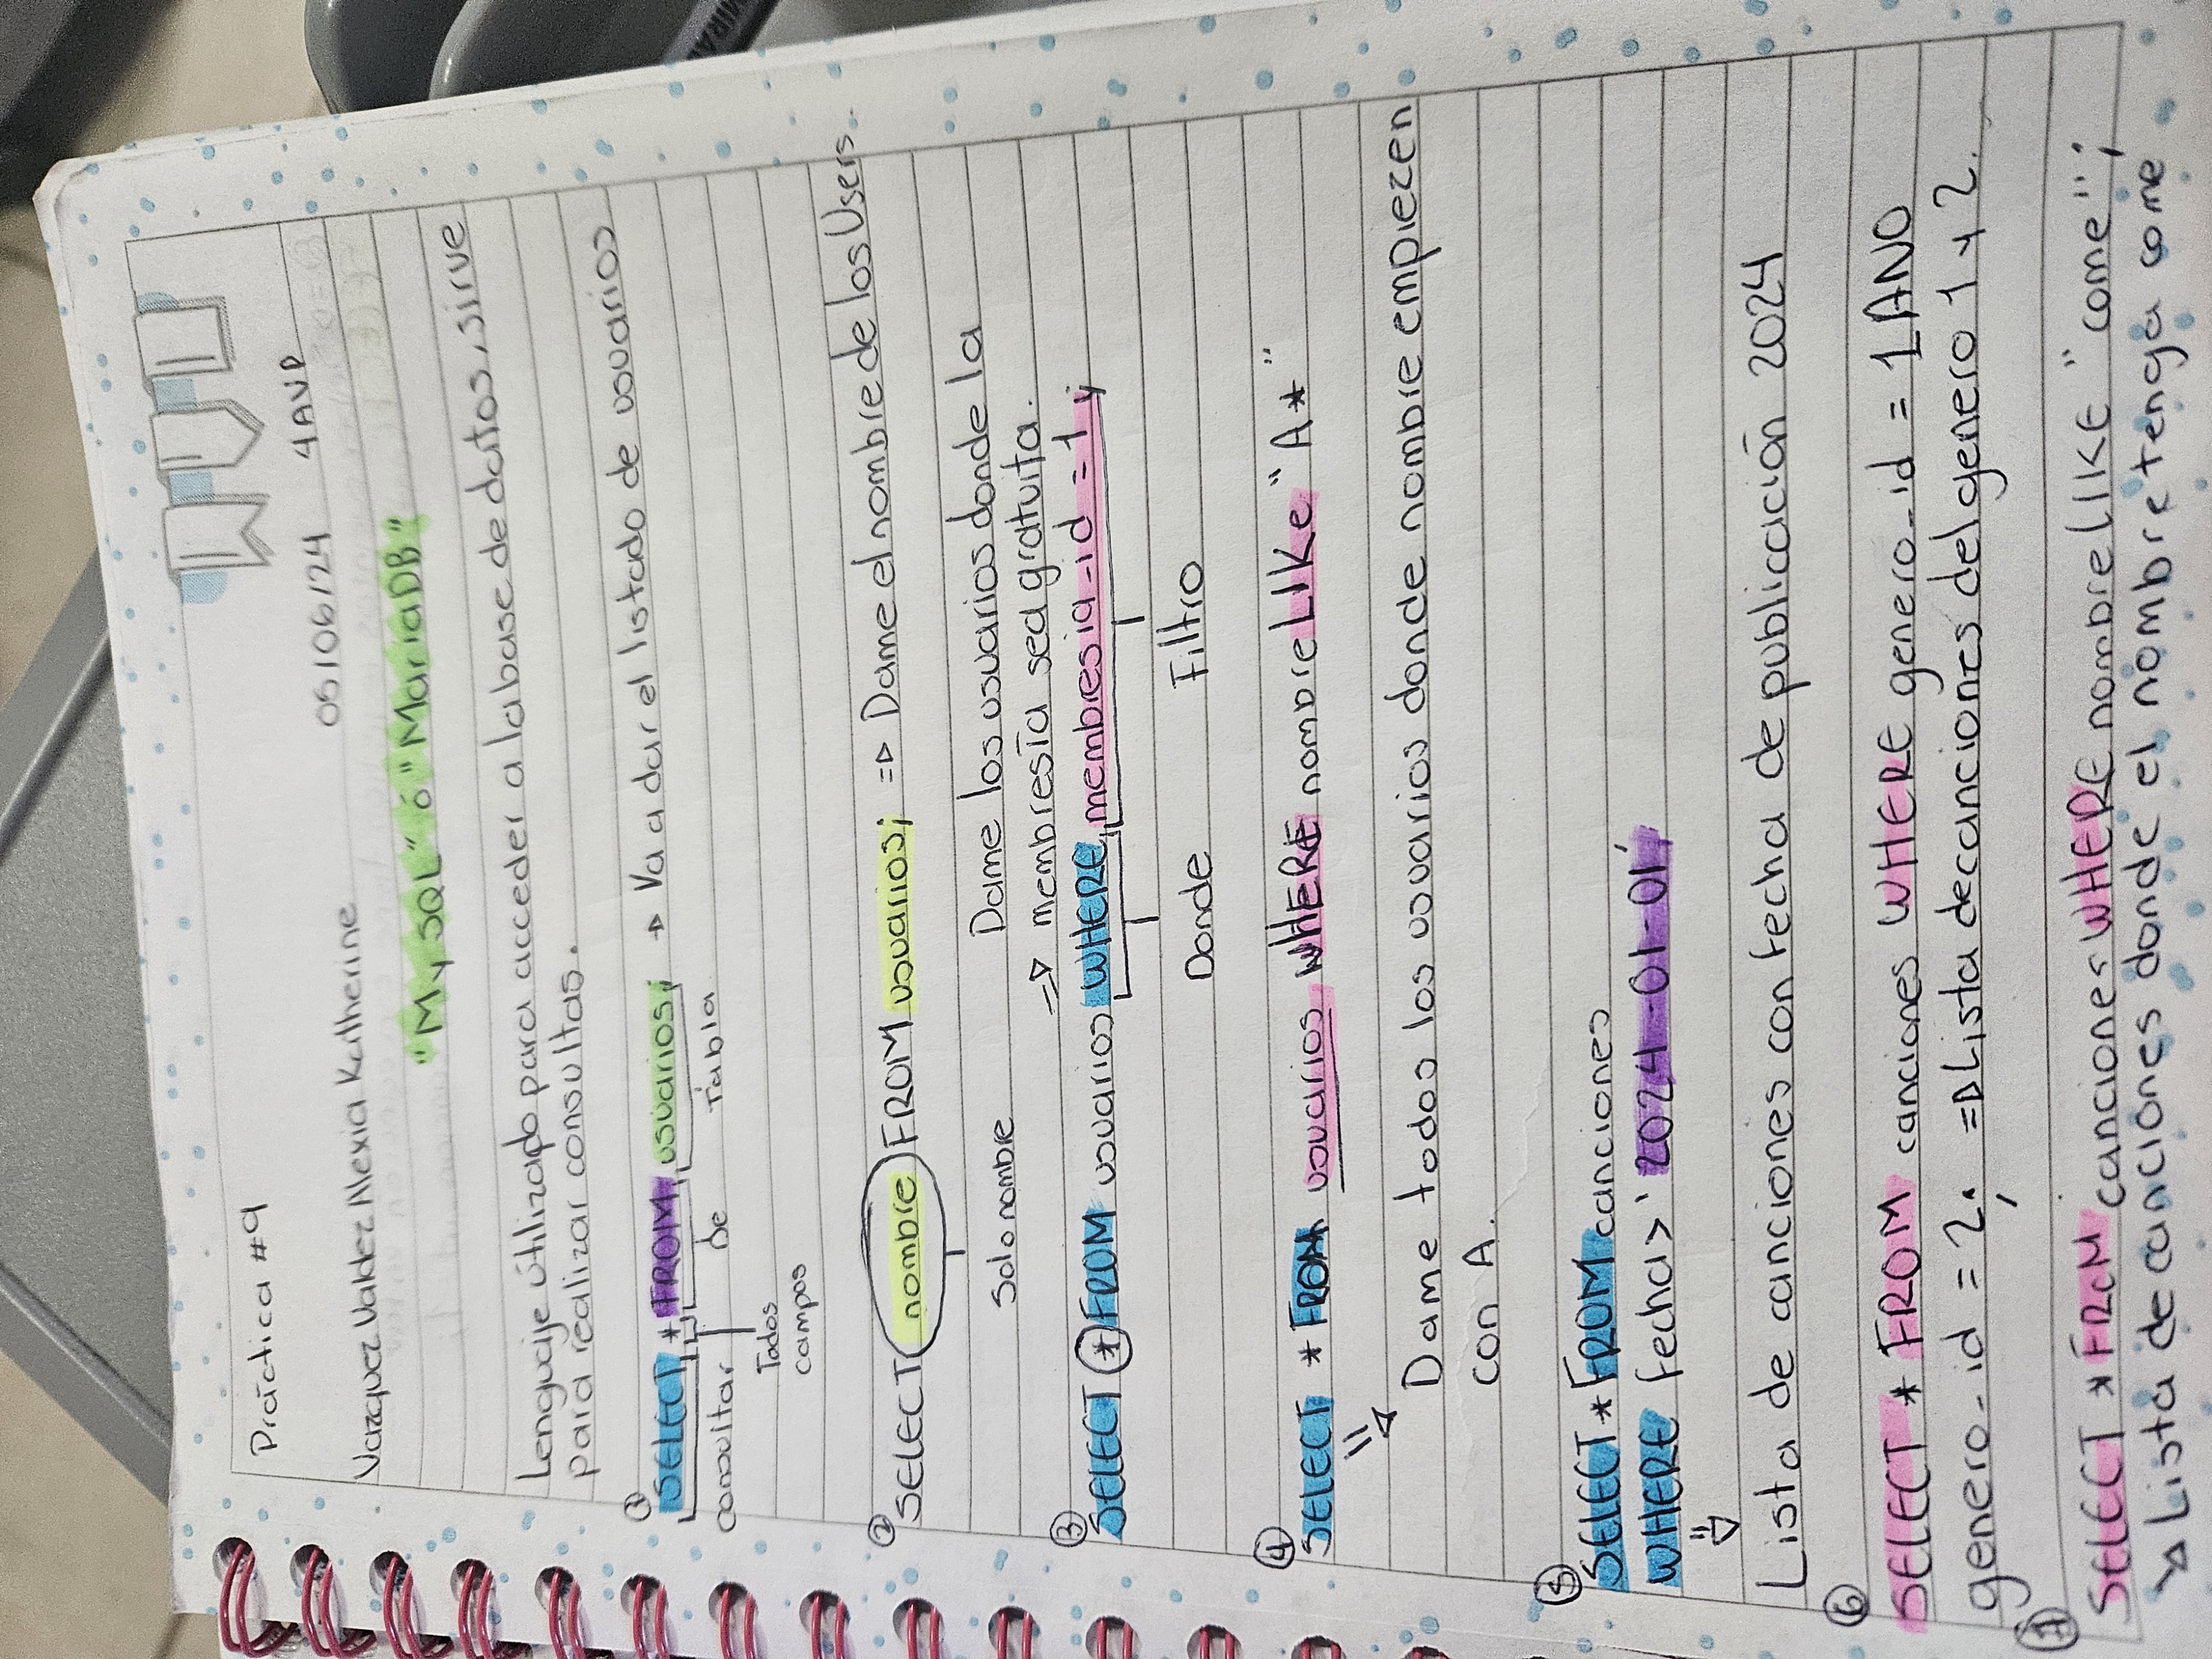 Práctica #9
05/06/24 4AVP
Vazquez Valdez Alexia Katherine
"My SQL" ó "MariaDB"
Lenguaje útilizado para acceder a la base de datos, sirve
para realizar consultas.
① SELECT * FROM usuarios; → Va a dar el listado de usuarios
consultar de Tabla
Todos
campos
② SELECT nombre FROM usuarios; => Dame el nombre de los Users.
Solo nombre
Dame los usuarios donde la
=> membresía sea gratuita.
③ SELECT * FROM usuarios WHERE membresia_id = 1;
Donde Filtro
④ SELECT * FROM usuarios WHERE nombre LIKe "A*"
Dame todos los usuarios donde nombre empiezen
con A.
⑤ SELECT * FROM canciones
WHERE fecha > '2024-01-01';
Lista de canciones con fecha de publicación 2024
⑥ SELECT * FROM canciones WHERE genero_id = 1 AND
genero_id = 2; => Lista de canciones del genero 1 y 2.
⑦ SELECT * FROM canciones WHERE nombre LIKE "come";
→ Lista de canciones donde el nombre tenga come